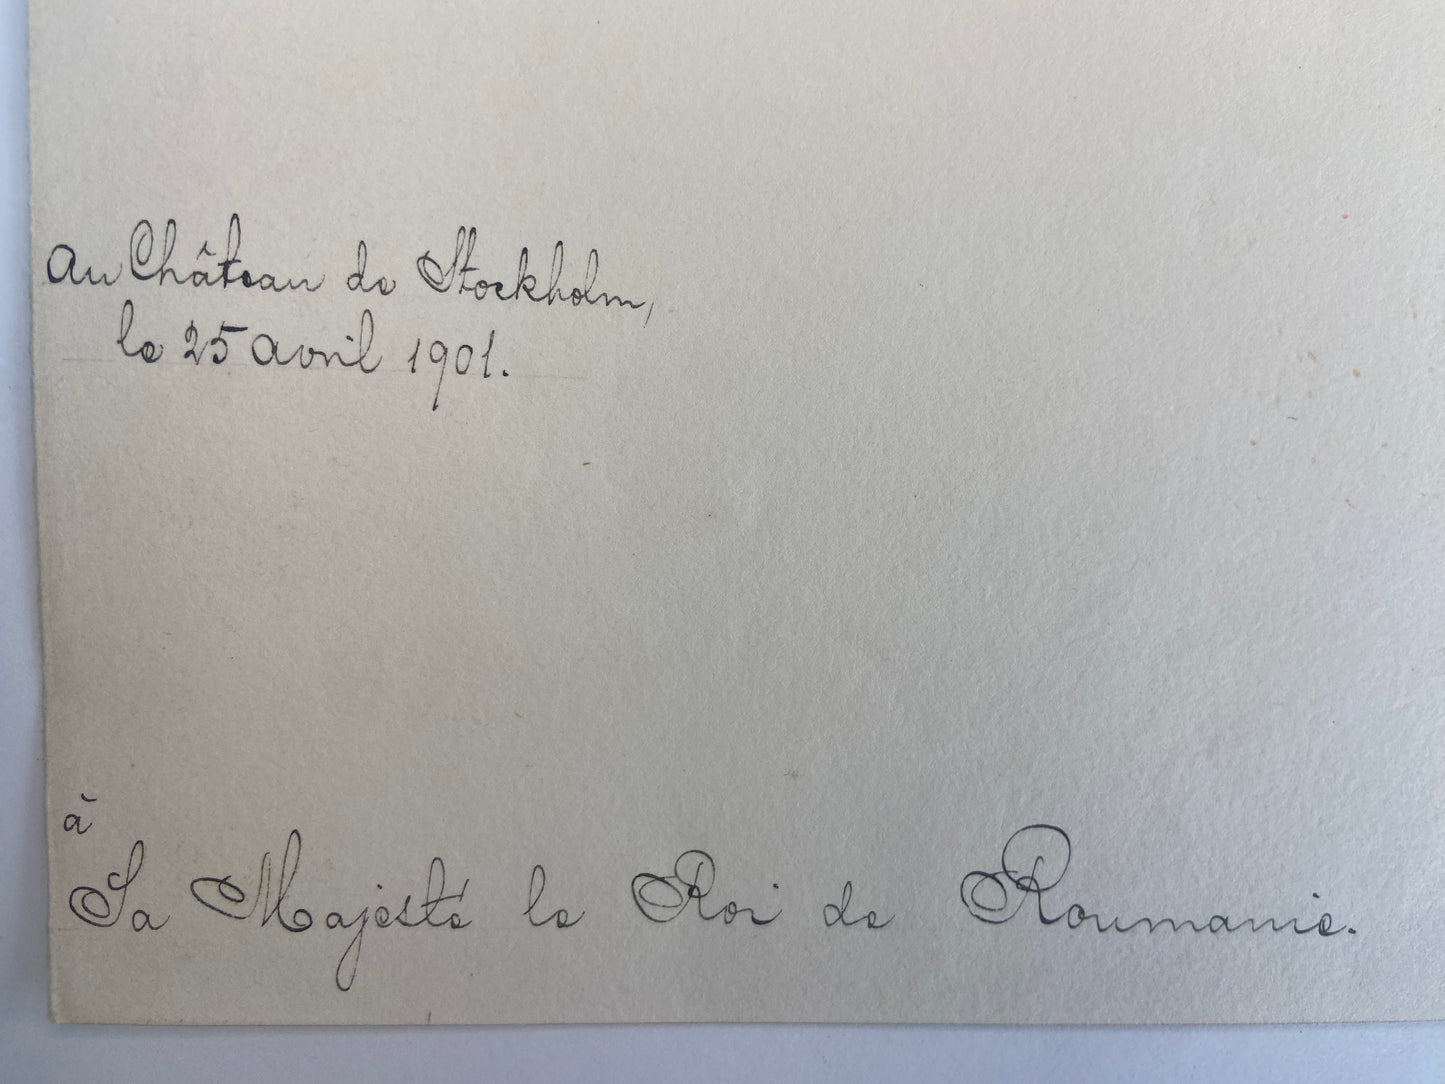 Au Château de Stockholm,
le 25 avril 1901.
à
Sa Majesté le Roi de Roumanie.